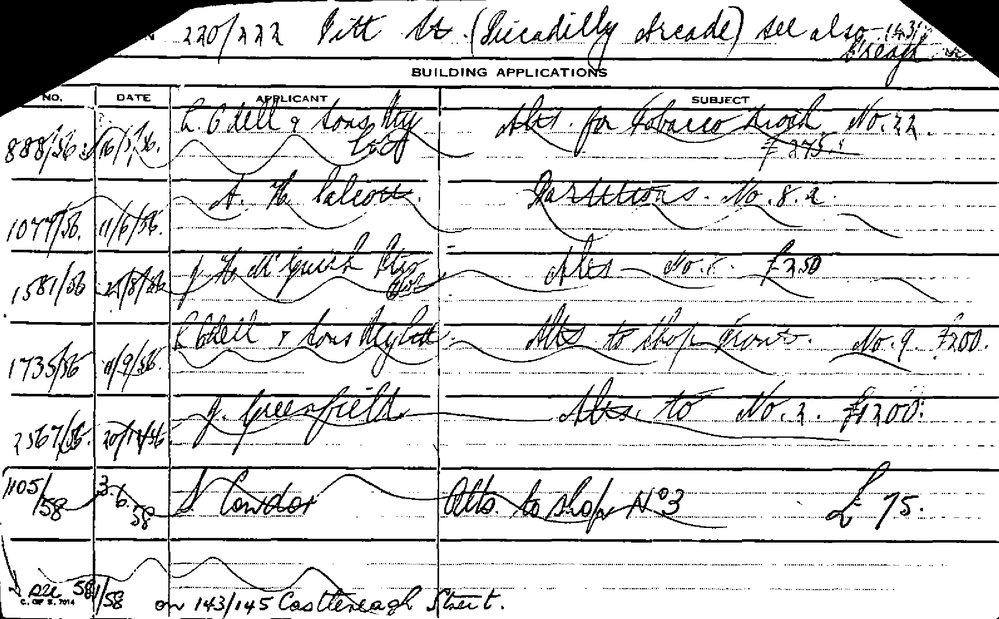 220/222 Pitt St. (Piccadilly Arcade) see also 143/
BUILDING APPLICATIONS
NO. DATE APPLICANT SUBJECT
888/56 16/5/56. L. Odell & Sons Pty Ltd Alts. for Tobacco Kiosk. No. 22. £275.
1077/56. 11/6/56. A. H. Partitions. No. 8.a.
1581/56 /8/56 J. Alts No. £250
1735/56 /9/56. L Odell & Sons Pty Ltd. Alts to Shop Front. No. 9 £200.
2567/56. 20/12/56 J. Greenfield. Alts. to No. 2. £1200.
1105/58 3.6.58 S. Cowdor Alts. to shop No 3 £75.
see 581/58 on 143/145 Castlereagh Street.
C. OF S. 7014